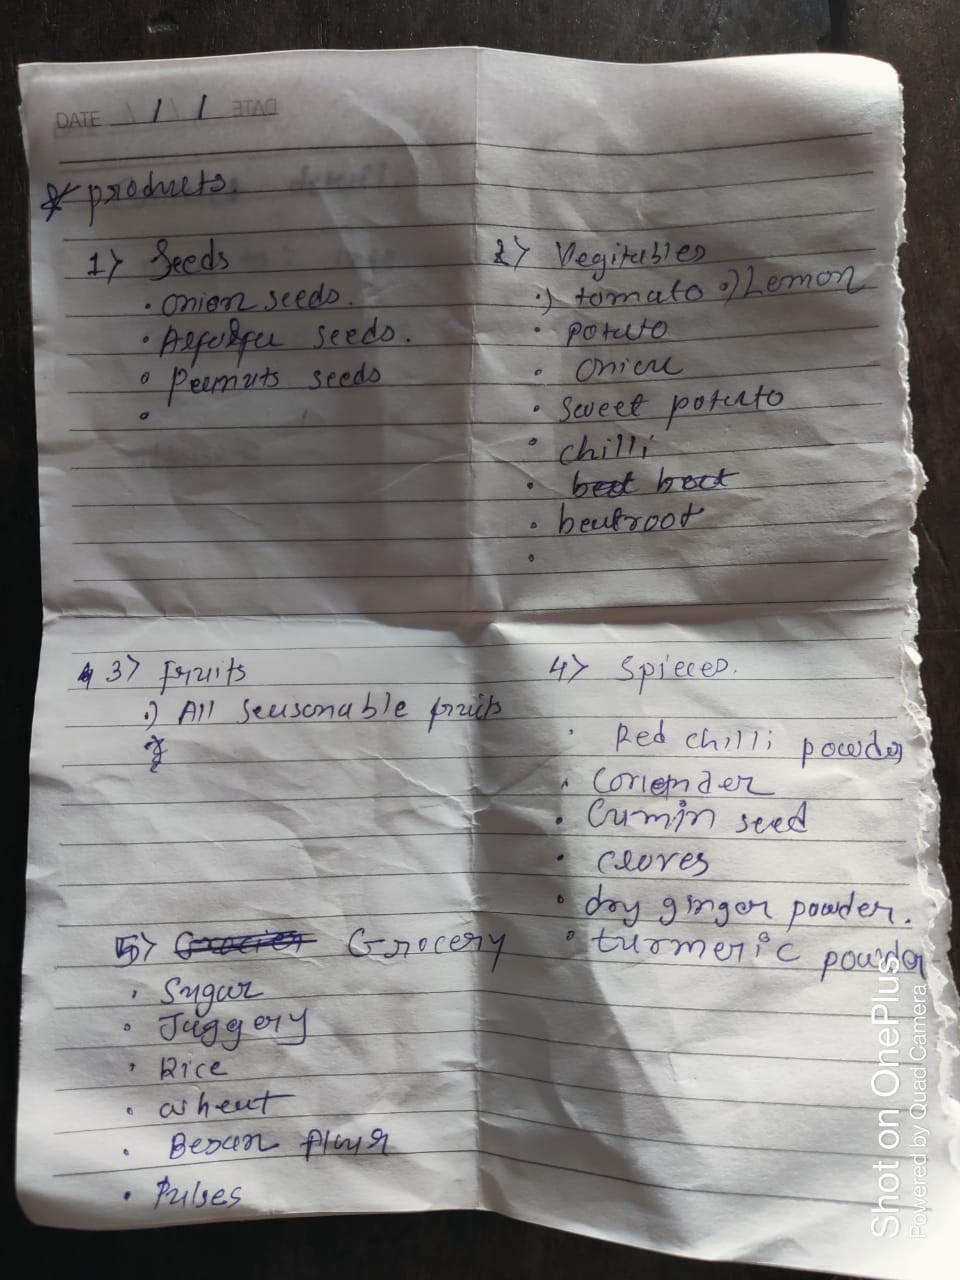 DATE / /
* products.
1> Seeds
• onion seeds.
• Alfalfa seeds.
• Peanuts seeds
2> Vegitables
•) tomato •) Lemon
• potato
• onion
• sweet potato
• chilli
• beetroot
3> fruits
•) All seasonable fruits
4> Spieces.
• Red chilli powder
• Coriender
• Cumin seed
• cloves
• dry ginger powder.
• turmeric powder
5> Grocery
• Sugar
• Jaggery
• Rice
• wheat
• Besan flour
• Pulses
Shot on OnePlus
Powered by Quad Camera